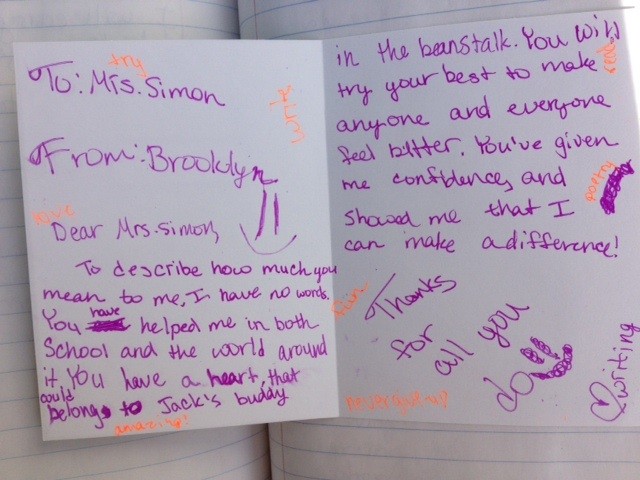 try
To: Mrs. Simon
write
From: Brooklyn
give
Dear Mrs. Simon,
To describe how much you
mean to me, I have no words.
You have helped me in both
School and the world around
it. You have a heart, that
could
belong to Jack's buddy
amazing!
in the beanstalk. You will
try your best to make
read
anyone and everyone
feel bitter. You've given
me confidence, and
poetry
showed me that I
can make a difference!
fun
Thanks
for
all you
do
never give up
♡writing